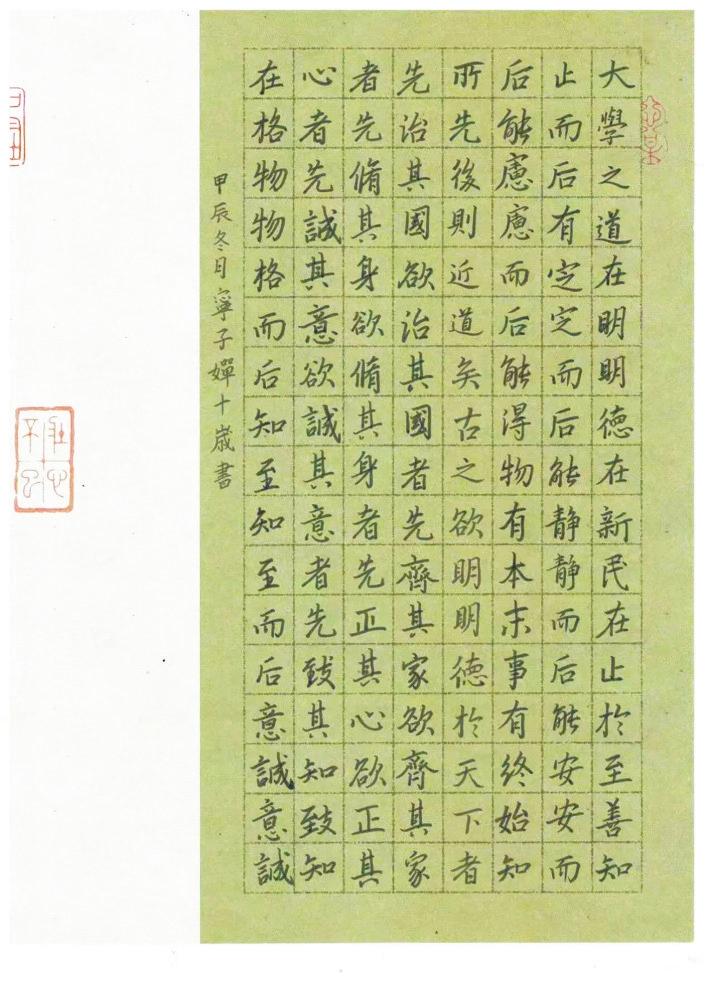 大學之道在明明德在新民在止於至善知
止而后有定定而后能静静而后能安安而
后能慮慮而后能得物有本末事有終始知
所先後則近道矣古之欲明明德於天下者
先治其國欲治其國者先齊其家欲齊其家
者先脩其身欲脩其身者先正其心欲正其
心者先誠其意欲誠其意者先致其知致知
在格物物格而后知至知至而后意誠意誠
甲辰冬月寧子嬋十歳書